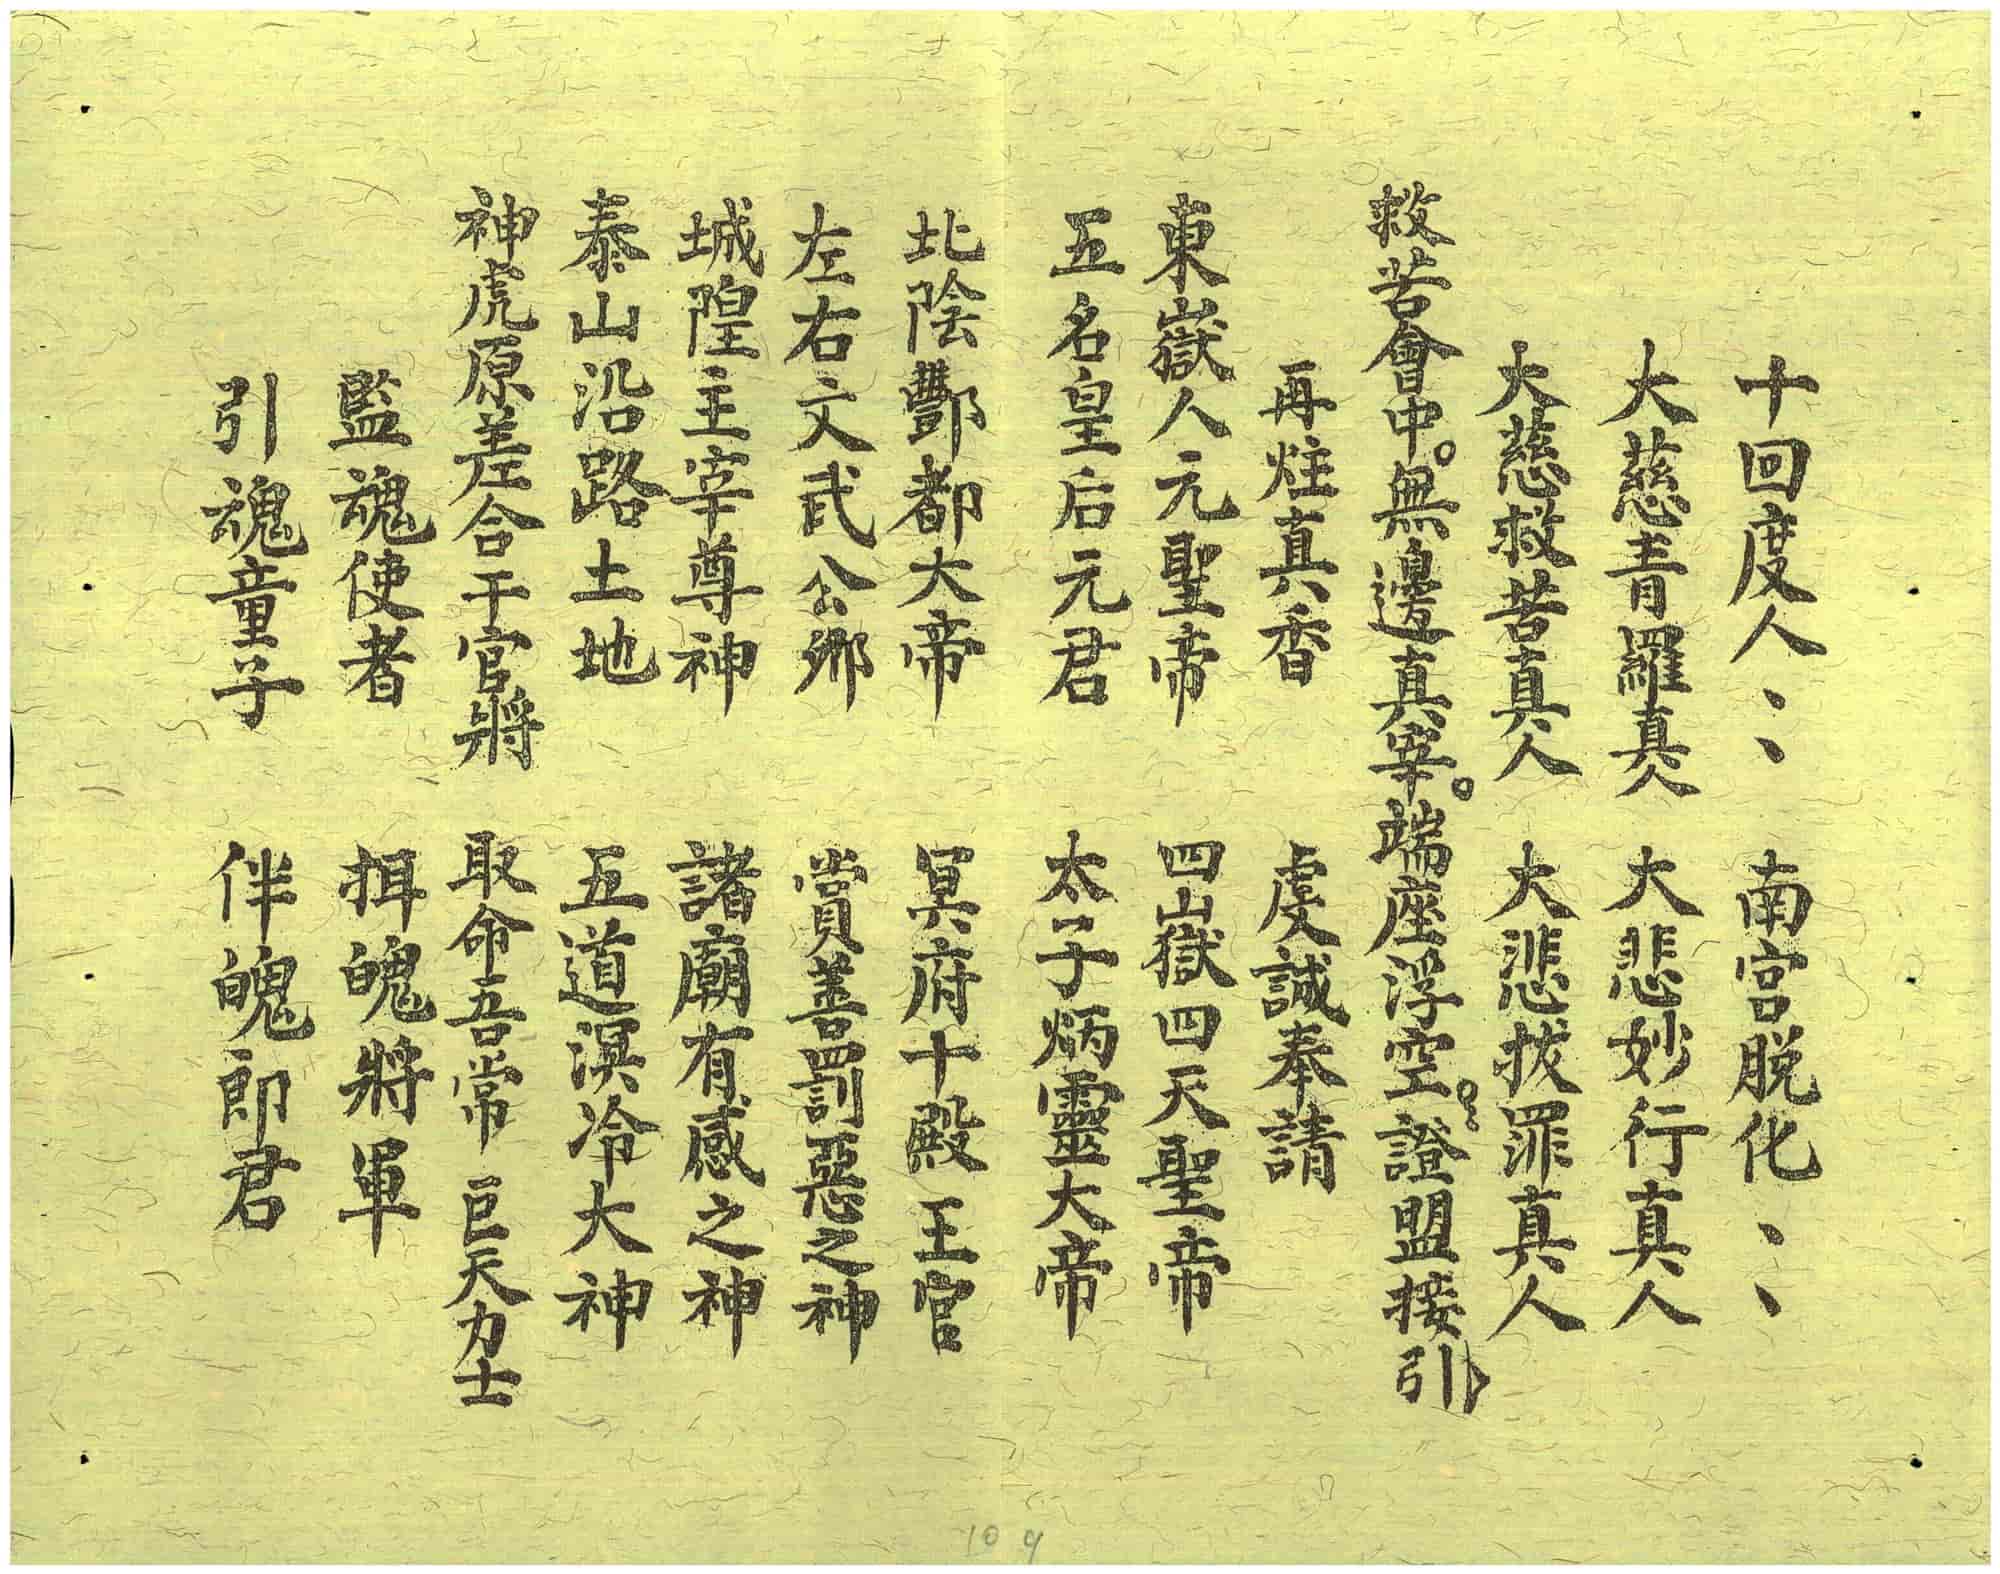 十回度人、、　南宮脱化、、
大慈青羅真人　大悲妙行真人
大慈救苦真人　大悲拔罪真人
救苦會中。無邊真宰。端座浮空。證盟接引
再炷真香　虔誠奉請
東嶽人元聖帝　四嶽四天聖帝
五名皇后元君　太子炳靈大帝
北陰酆都大帝　冥府十殿王官
左右文武公卿　賞善罰惡之神
城隍主宰尊神　諸廟有感之神
泰山沿路土地　五道溟冷大神
神虎原差合干官將　取命吾常　巨天力士
監魂使者　揖魄將軍
引魂童子　伴魄郎君
10 9